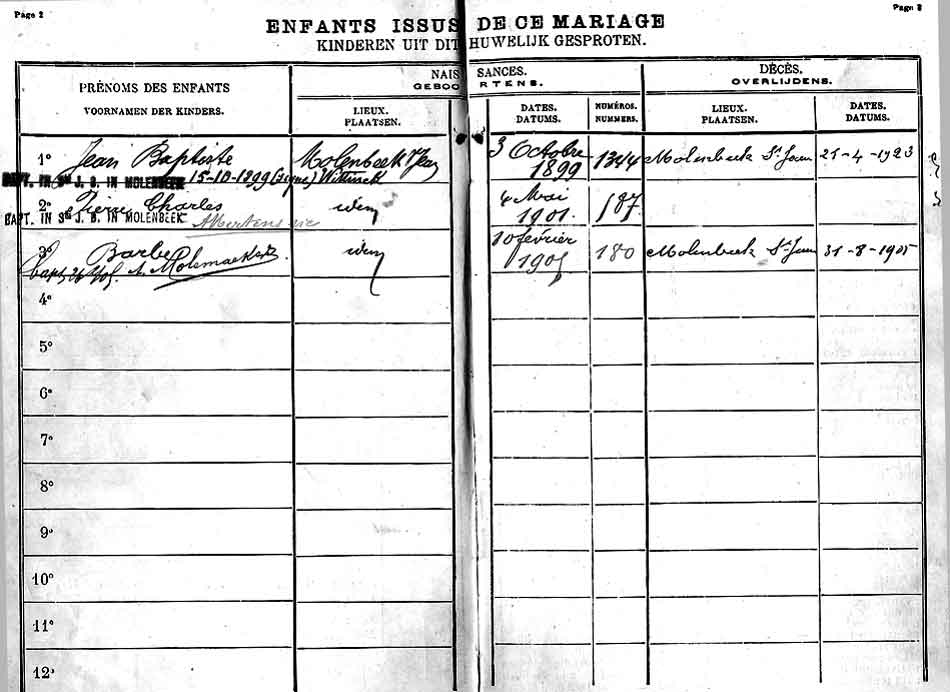 Page 2
Page 3
ENFANTS ISSUS DE CE MARIAGE
KINDEREN UIT DIT HUWELIJK GESPROTEN.
PRÉNOMS DES ENFANTS
VOORNAMEN DER KINDERS.
NAISSANCES.
GEBOORTENS.
LIEUX.
PLAATSEN.
DATES.
DATUMS.
NUMÉROS.
NUMMERS.
DÉCÈS.
OVERLIJDENS.
LIEUX.
PLAATSEN.
DATES.
DATUMS.
1° Jean Baptiste Molenbeek St Jean 3 Octobre 1899 1344 Molenbeek St Jean 21-4-1923
BAPT. IN St J. B. IN MOLENBEEK 15-10-1899 (signé)
2° Pierre Charles idem 4 Mai 1901. 187
BAPT. IN St J. B. IN MOLENBEEK
3° Barbe idem 10 février 1905 180 Molenbeek St Jean 31-8-1905
4°
5°
6°
7°
8°
9°
10°
11°
12°